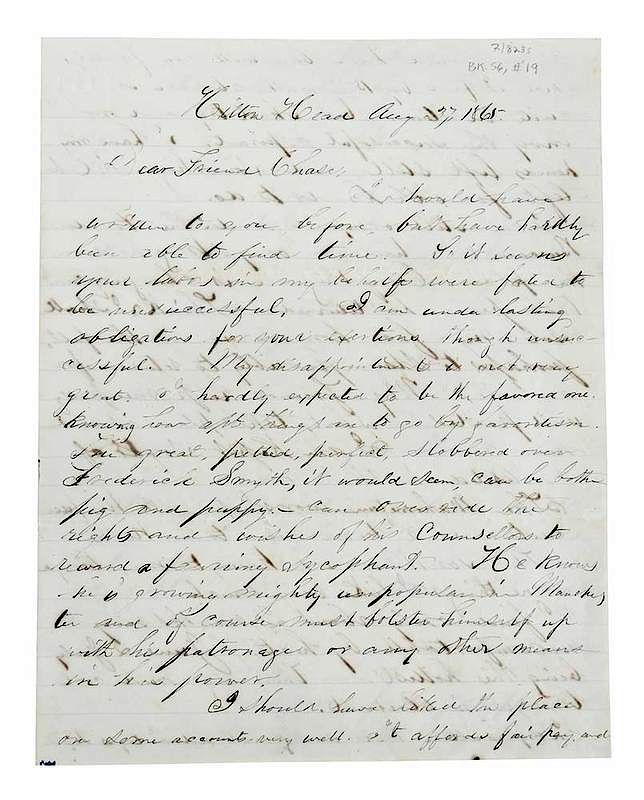 7/8235
BK. 56, #19
Hilton Head Aug 27, 1865
Dear Friend Chase;
I would have
written to you before, but have hardly
been able to find time. So it seems
your labors in my behalf were fated to
be unsuccessful, I am under lasting
obligations for your exertions though unsuc-
cessful. My disappointment is not very
great. I hardly expected to be the favored one.
knowing how apt things are to go by favoritism.
The great, petted, perfect, slobbered over
Frederick Smyth, it would seem, can be both
pig and puppy.- can override the
rights and wishes of his Counsellors to
reward a fawning sycophant. He knows
he is growing mighty unpopular in Manches
ter and of course must bolster himself up
with his patronage or any other means
in his power.
I should have liked the place
on some accounts very well. It affords fair pay, and